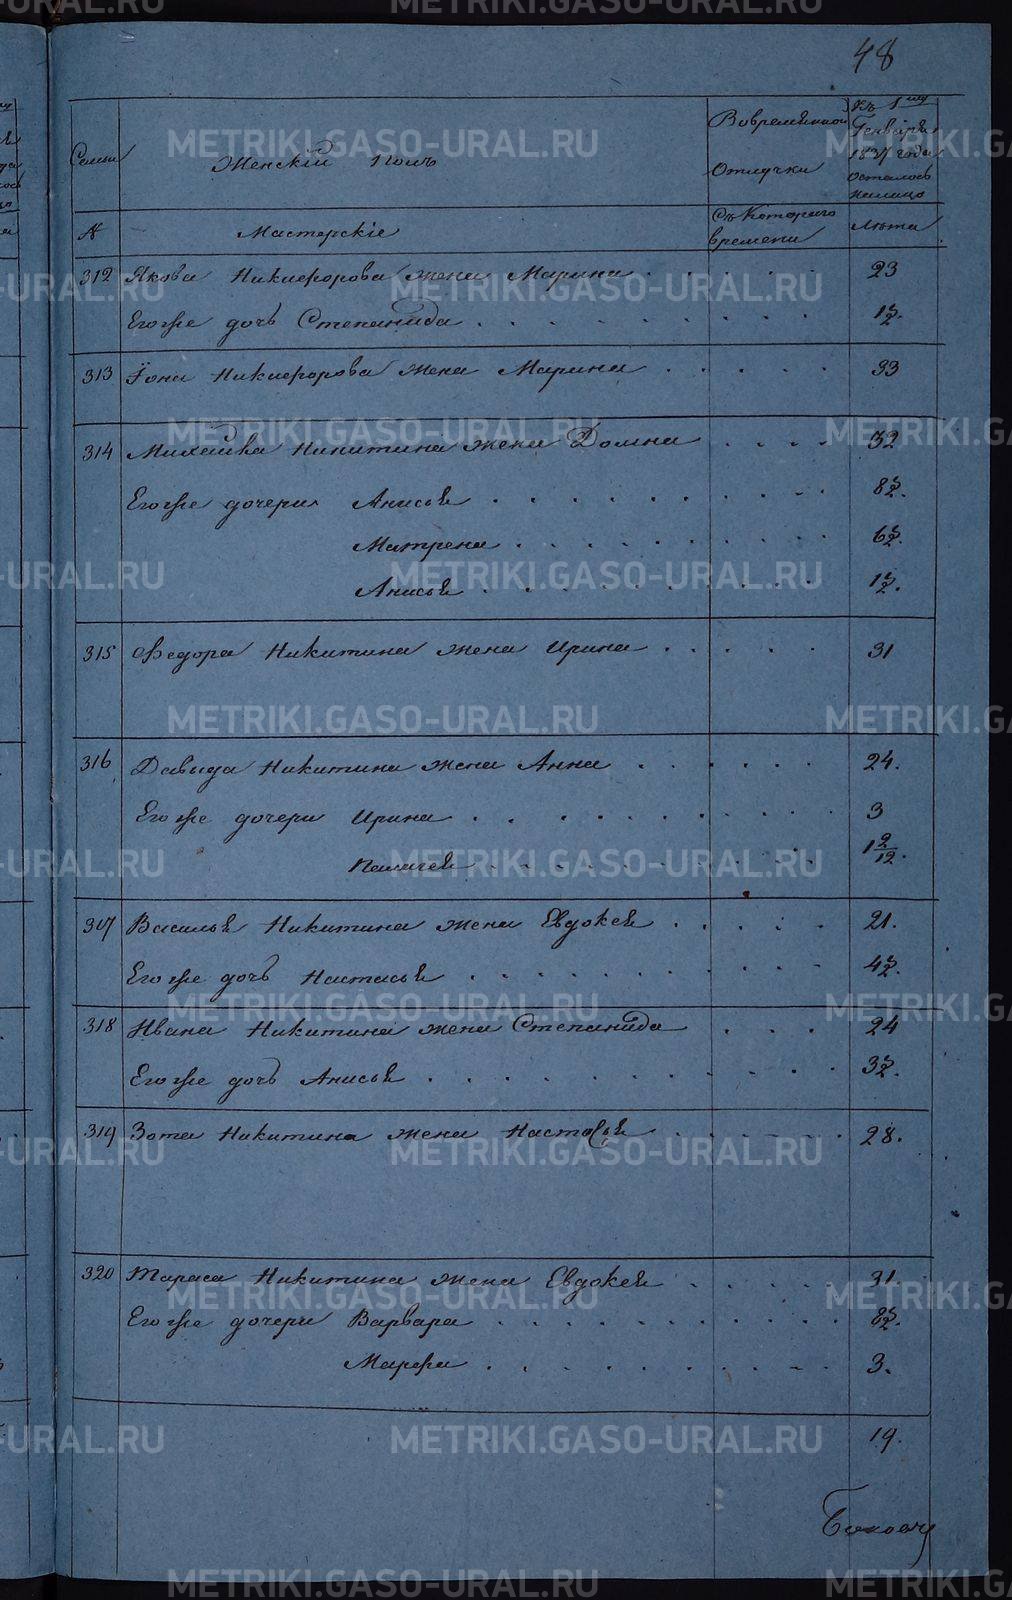 48
Семьи Женскій Полъ Вовременной Отлучки Къ 1му Генваря 1834 года осталось налицо
№ Мастерскіе Съ Котораго времени Лѣта
312 Якова Никифорова жена Марина 23
Егоже дочь Степанида 1½.
313 Іона Никифорова жена Марина 33
314 Михайла Никитина жена Домна 32
Егоже дочери Анисья 8½.
Матрена 6½.
Анисья 1½.
315 Федора Никитина жена Ирина 31
316 Давыда Никитина жена Анна 24.
Егоже дочери Ирина 3
Палагея 1 9/12.
317 Василья Никитина жена Евдокея 21.
Егоже дочь Настасья 4½.
318 Ивана Никитина жена Степанида 24
Егоже дочь Анисья 3½.
319 Зота Никитина жена Настасья 28.
320 Тараса Никитина жена Евдокея 31.
Егоже дочери Варвара 8½.
Марфа 3.
19.
METRIKI.GASO-URAL.RU